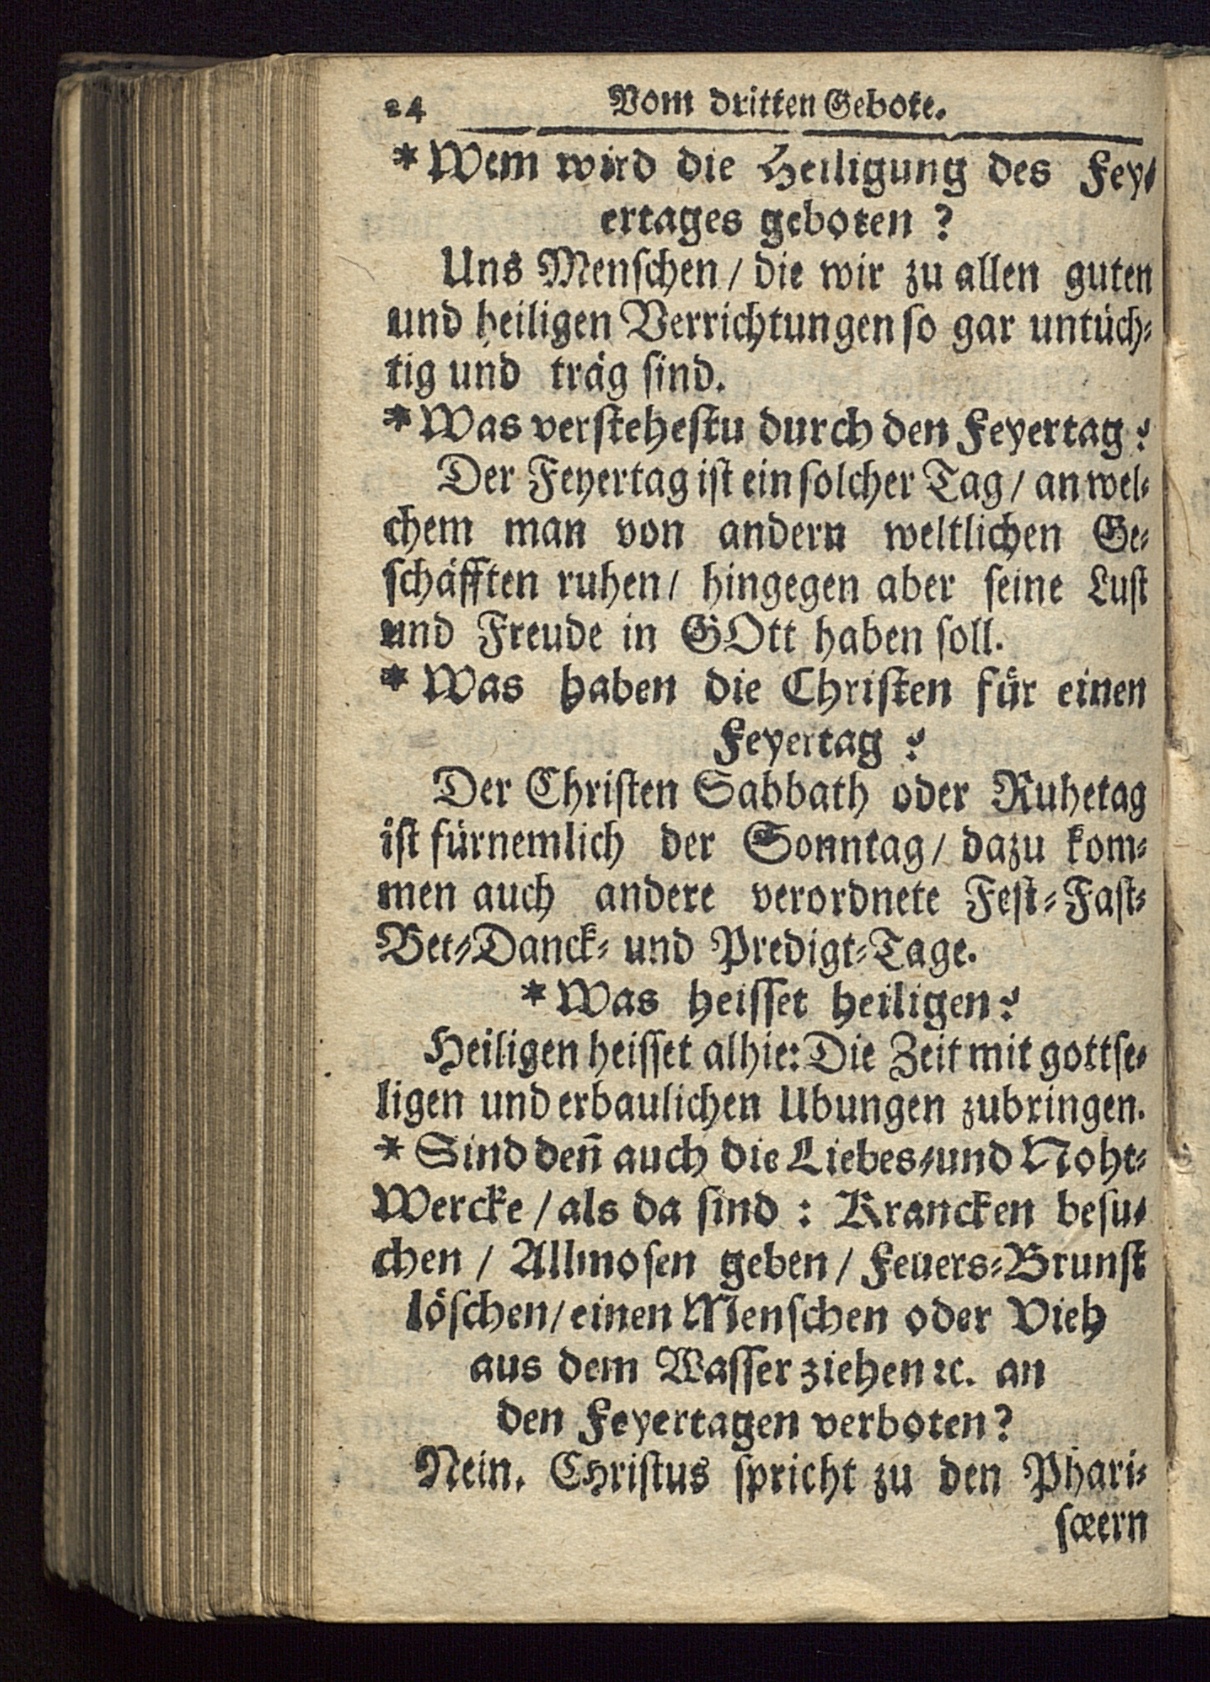 24 Vom dritten Gebote.
* Wem wird die Heiligung des Fey-
ertages geboten ?
Uns Menschen / die wir zu allen guten
und heiligen Verrichtungen so gar untüch-
tig und träg sind.
* Was verstehestu durch den Feyertag ?
Der Feyertag ist ein solcher Tag / an wel-
chem man von andern weltlichen Ge-
schäfften ruhen / hingegen aber seine Lust
und Freude in GOtt haben soll.
* Was haben die Christen für einen
Feyertag ?
Der Christen Sabbath oder Ruhetag
ist fürnemlich der Sonntag / dazu kom-
men auch andere verordnete Fest-Fast-
Bet-Danck- und Predigt-Tage.
* Was heisset heiligen ?
Heiligen heisset alhie: Die Zeit mit gottse-
ligen und erbaulichen Ubungen zubringen.
* Sind deñ auch die Liebes-und Noht-
Wercke / als da sind : Krancken besu-
chen / Allmosen geben / Feuers-Brunst
löschen / einen Menschen oder Vieh
aus dem Wasser ziehen ꝛc. an
den Feyertagen verboten ?
Nein. CHristus spricht zu den Phari-
sœern